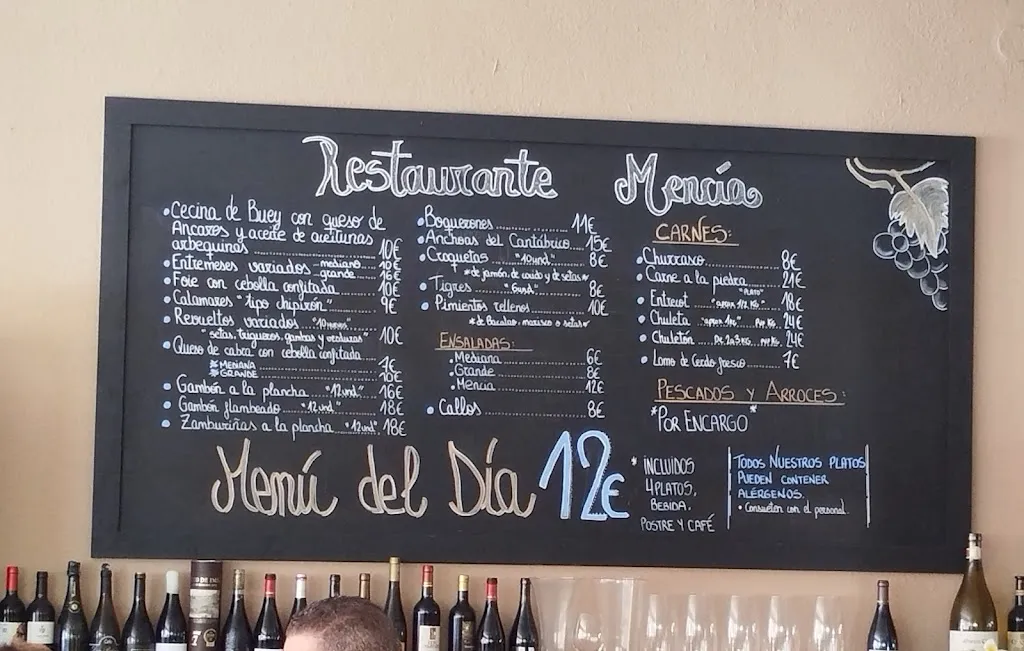 Restaurante Mencía
• Cecina de Buey con queso de
Ancares y aceite de aceitunas
arbequinas 10€
• Entremeses variados mediano 10€
grande 16€
• Foie con cebolla confitada 10€
• Calamares "tipo chipirón" 9€
• Revueltos variados
"setas, trigueros, gambas y verduras" 10€
• Queso de cabra con cebolla confitada
* MEDIANA 7€
* GRANDE 10€
• Gambón a la plancha "12und." 16€
• Gambón flambeado "12und." 18€
• Zamburiñas a la plancha "12und." 18€
• Boquerones 11€
• Anchoas del Cantábrico 15€
• Croquetas "10und." 8€
*de jamón, de cocido y de setas*
• Tigres "6und." 8€
• Pimientos rellenos 10€
*de bacalao, marisco o setas*
ENSALADAS:
• Mediana 6€
• Grande 8€
• Mencia 12€
• Callos 8€
CARNES:
• Churrasco 8€
• Carne a la piedra 21€
• Entrecot "PLATO" "aprox 1/2 KG" 18€
• Chuleta "aprox 1KG" por KG. 24€
• Chuletón DE 2 a 3 KG por KG. 24€
• Lomo de Cerdo fresco 7€
PESCADOS y ARROCES:
*POR ENCARGO*
Menú del Día 12€
* INCLUIDOS
4 PLATOS,
BEBIDA,
POSTRE Y CAFÉ
TODOS NUESTROS PLATOS
PUEDEN CONTENER
ALÉRGENOS.
• Consulten con el personal.